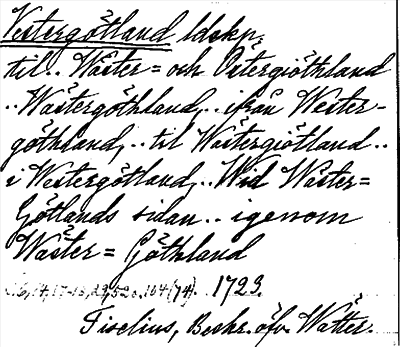 Vestergötland ldskp.
til.. Wäster= och Östergiöthland
..Wästergöthland,.. ifrån Wester-
göthland,.. til Wästergiötland..
i Westergötland,.. Wid Wäster=
Götlands sidan.. igenom
Wäster= Göthland
1723.
Tiselius, Beskr. öfv. Wätter.